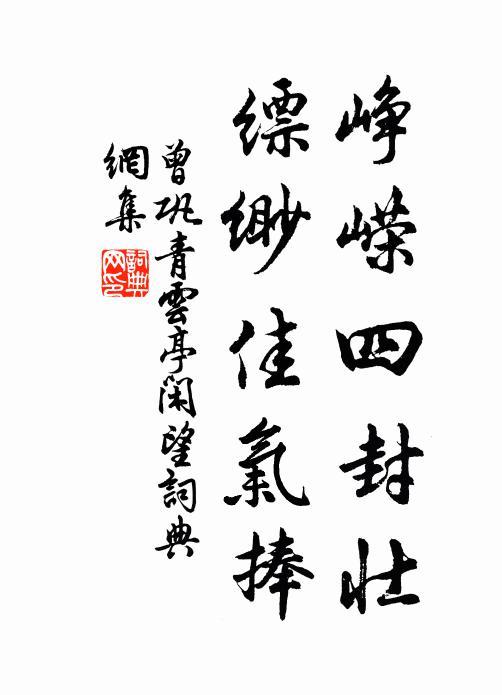 峥嵘四封壮
缥缈佳氣捧
曾巩青雲亭闲望詞典
網集
詞典
网印